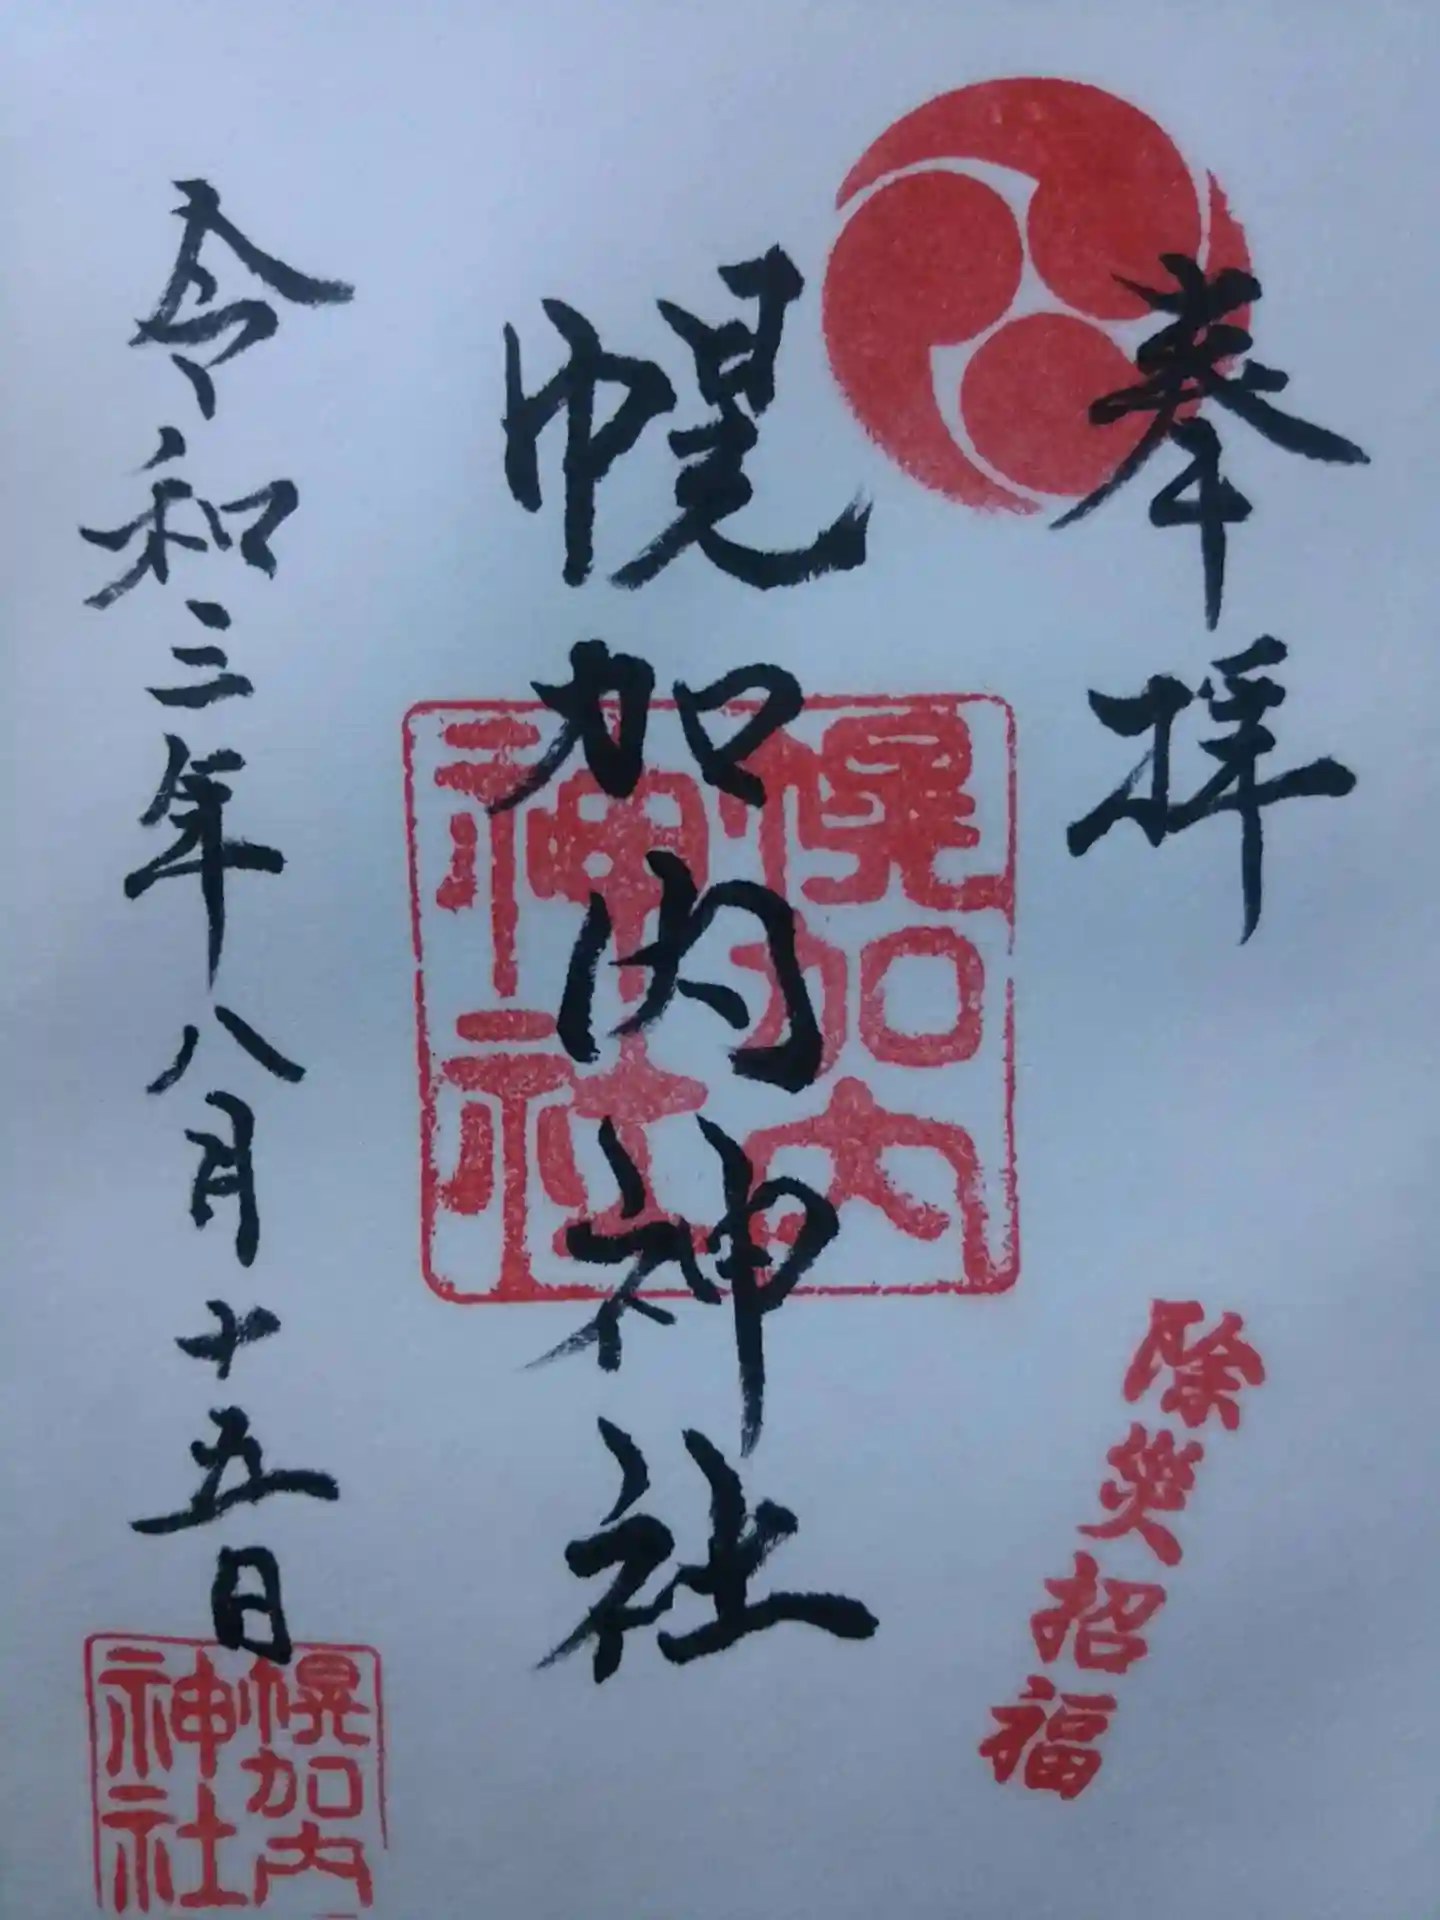 奉拝
除災招福
幌加内神社
幌加内
神社
令和三年八月十五日
幌加内
神社